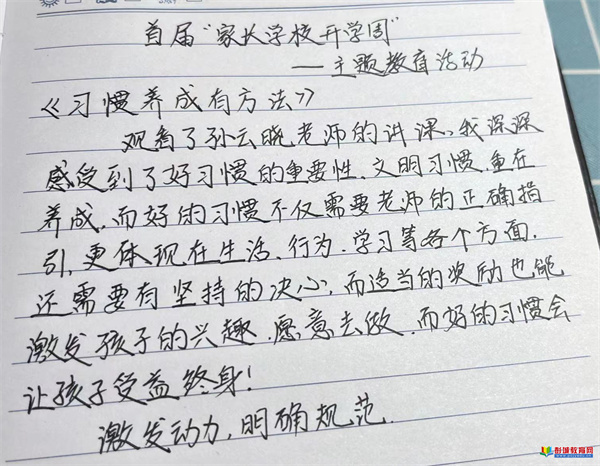 首届“家长学校开学周”
——主题教育活动
《习惯养成有方法》
观看了孙云晓老师的讲课,我深深
感受到了好习惯的重要性、文明习惯,重在
养成,而好的习惯不仅需要老师的正确指
引,更体现在生活、行为、学习等各个方面,
还需要有坚持的决心,而适当的奖励也能
激发孩子的兴趣,愿意去做,而好的习惯会
让孩子受益终身!
激发动力,明确规范.
彭城教育网